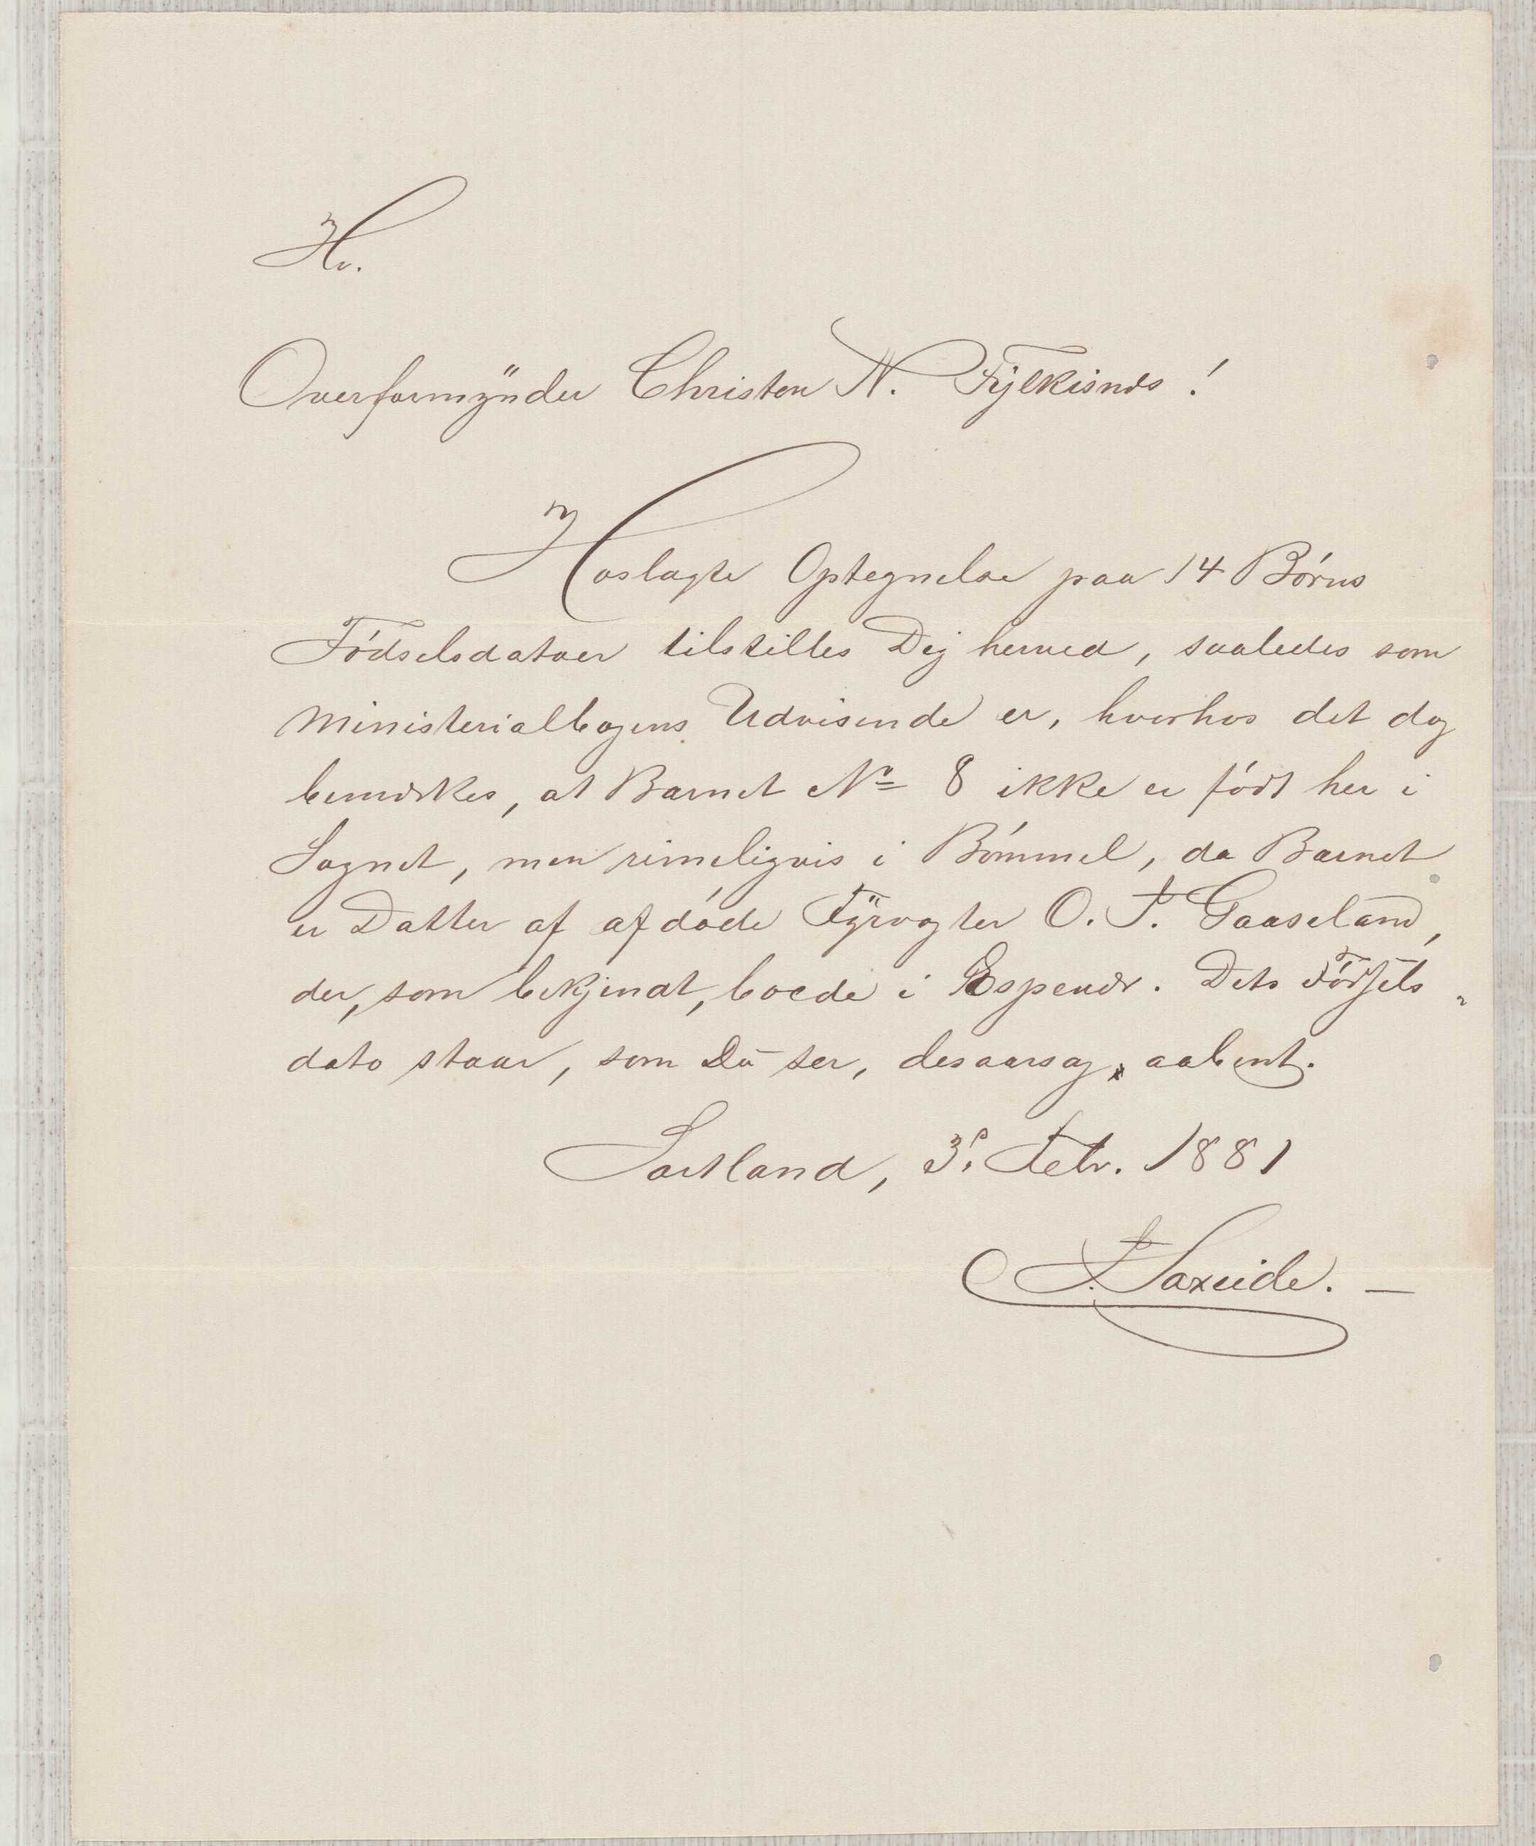 Hr.
Overformynder Christen N. Fylkisnæs!
Hoslagte Optegnelse paa 14 Børns
Fødselsdatoer tilstilles Dig herved, saaledes som
Ministerialbogens Udvisende er, hvorhos det dog
bemærkes, at Barnet No 8 ikke er født her i
Sognet, men rimeligvis i Bømmel, da Barnet
er Datter af afdøde Fyrvogter O. T. Gaaseland,
der, som bekjendt, boede i Espevær. Dets Fødsels-
dato staar, som Du ser, desaarsag, aabent.
Sortland, 3. Febr. 1881
T. Saxeide. —